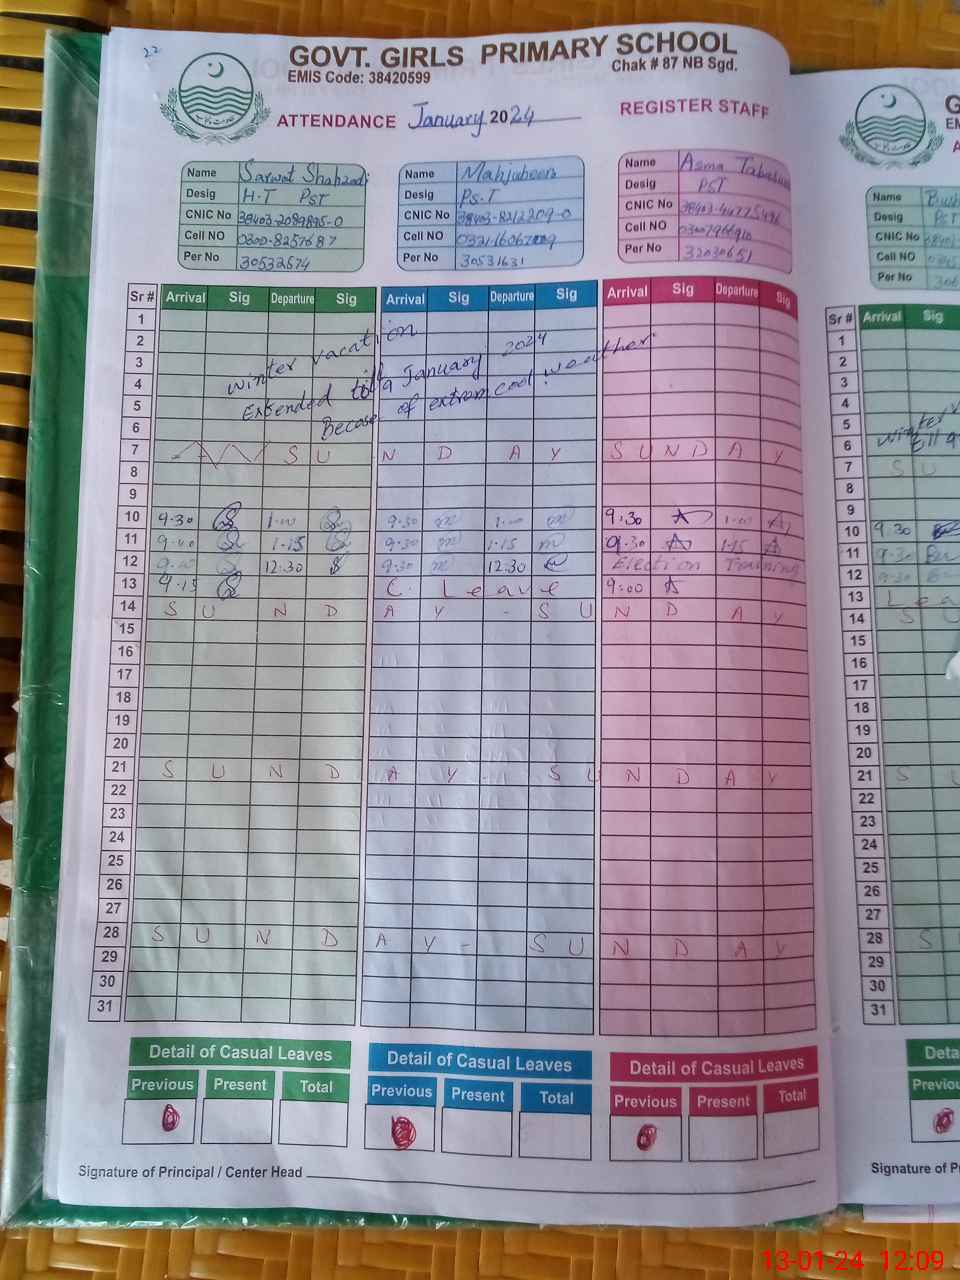 22
GOVT. GIRLS PRIMARY SCHOOL
EMIS Code: 38420599
Chak # 87 NB Sgd.
ATTENDANCE January 2024
REGISTER STAFF
Name Sarwat Shahzadi
Desig H.T PST
CNIC No 38403-2089895-0
Cell NO 0300-8257687
Per No 30532574
Name Mahjabeen
Desig Ps.T
CNIC No 38403-8212209-0
Cell NO
Per No 30531631
Name Asma
Desig PST
CNIC No
Cell NO 03007966910
Per No 32030651
Name
Desig PST
CNIC No
Cell NO
Per No
Sr # Arrival Sig Departure Sig Arrival Sig Departure Sig Arrival Sig Departure Sig Sr # Arrival Sig
1 1
2 winter vacation 2
3 Extended till 9 January 2024 3
4 Becase of extrem cool weather 4
5 5
6 6
7 SUNDAY SUNDAY 7 SU
8 8
9 9
10 9.30 1.00 9.30 1.00 9:30 1.00 10 9.30
11 9.40 1.15 9.30 1.15 9.30 1.15 11 9.30
12 12:30 9.30 12:30 Election Training 12 9.30
13 9.15 C. Leave 9:00 13 Lea
14 SUNDAY - SUNDAY 14 SU
15 15
16 16
17 17
18 18
19 19
20 20
21 SUNDAY - SUNDAY 21 S
22 22
23 23
24 24
25 25
26 26
27 27
28 SUNDAY - SUNDAY 28 S
29 29
30 30
31 31
Detail of Casual Leaves
Previous Present Total
Detail of Casual Leaves
Previous Present Total
Detail of Casual Leaves
Previous Present Total
Signature of Principal / Center Head
13-01-24 12:09